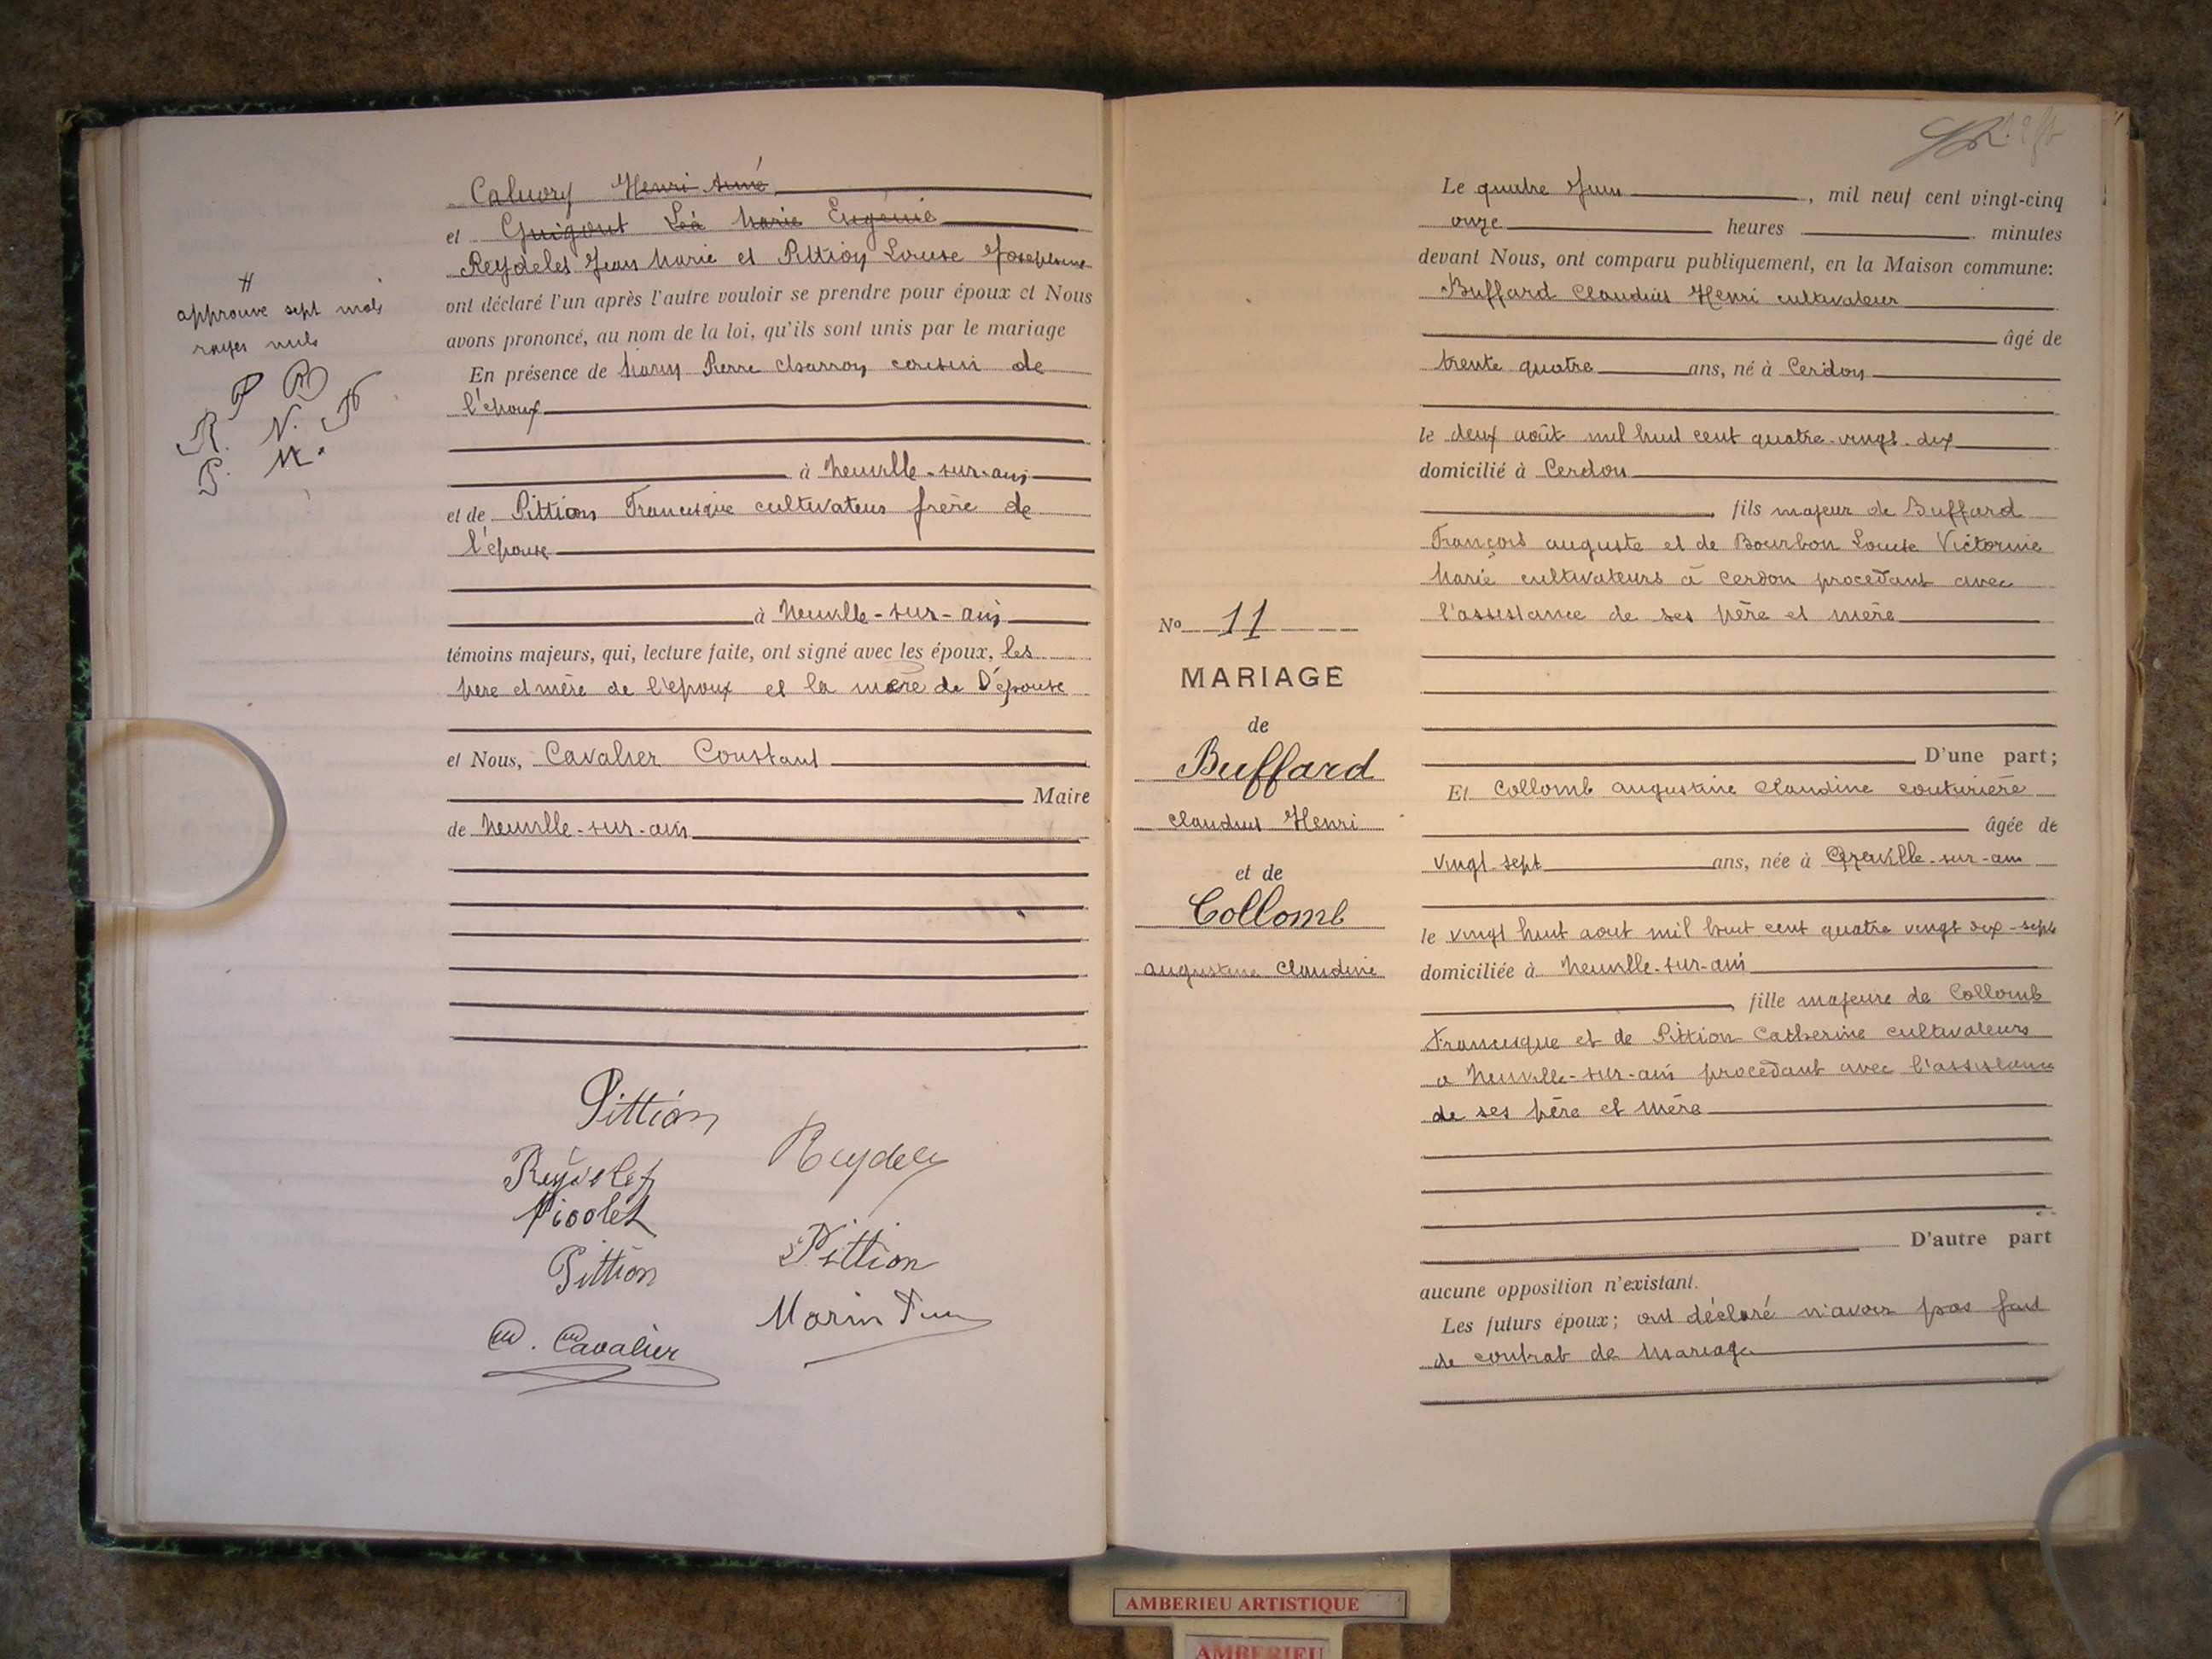 Caluory Henri Aimé
et Guigout Léà Marie Eugénie
Reydelet Jean Marie et Pittion Louise Josephine
ont déclaré l'un après l'autre vouloir se prendre pour époux et Nous
avons prononcé, au nom de la loi, qu'ils sont unis par le mariage
En présence de Marin Pierre charron cousin de
l'époux
à Neuville-sur-ain
et de Pittion Francisque cultivateur frère de
l'épouse
à Neuville-sur-ain
témoins majeurs, qui, lecture faite, ont signé avec les époux, les
père et mère de l'epoux et la mère de l'épouse
et Nous, Cavalier Constant
Maire
de Neuville-sur-ain
#
approuve sept mots
rayes nuls
P R
R. N.
P. M.
Pittion
Reydelet
Reydelet
Nicolet
Pittion
Pittion
Marin
C. Cavalier
Le quatre Juin, mil neuf cent vingt-cinq
onze heures minutes
devant Nous, ont comparu publiquement, en la Maison commune:
Buffard Claudius Henri cultivateur
âgé de
trente quatre ans, né à Cerdon
le deux août mil huit cent quatre-vingt-dix
domicilié à Cerdon
fils majeur de Buffard
François auguste et de Bourbon Louise Victorine
Marie cultivateurs à Cerdon procedant avec
l'assistance de ses père et mère
D'une part;
Et Collomb augustine Claudine couturière
âgée de
vingt-sept ans, née à Neuville-sur-ain
le vingt huit aout mil huit cent quatre vingt dix-sept
domiciliée à Neuville-sur-ain
fille majeure de Collomb
Francisque et de Pittion Catherine cultivateurs
a Neuville-sur-ain procedant avec l'assistance
de ses père et mère
D'autre part
aucune opposition n'existant.
Les futurs époux; ont déclaré n'avoir pas fait
de contrat de mariage
No 11
MARIAGE
de
Buffard
Claudius Henri
et de
Collomb
augustine Claudine
AMBERIEU ARTISTIQUE
AMBERIEU